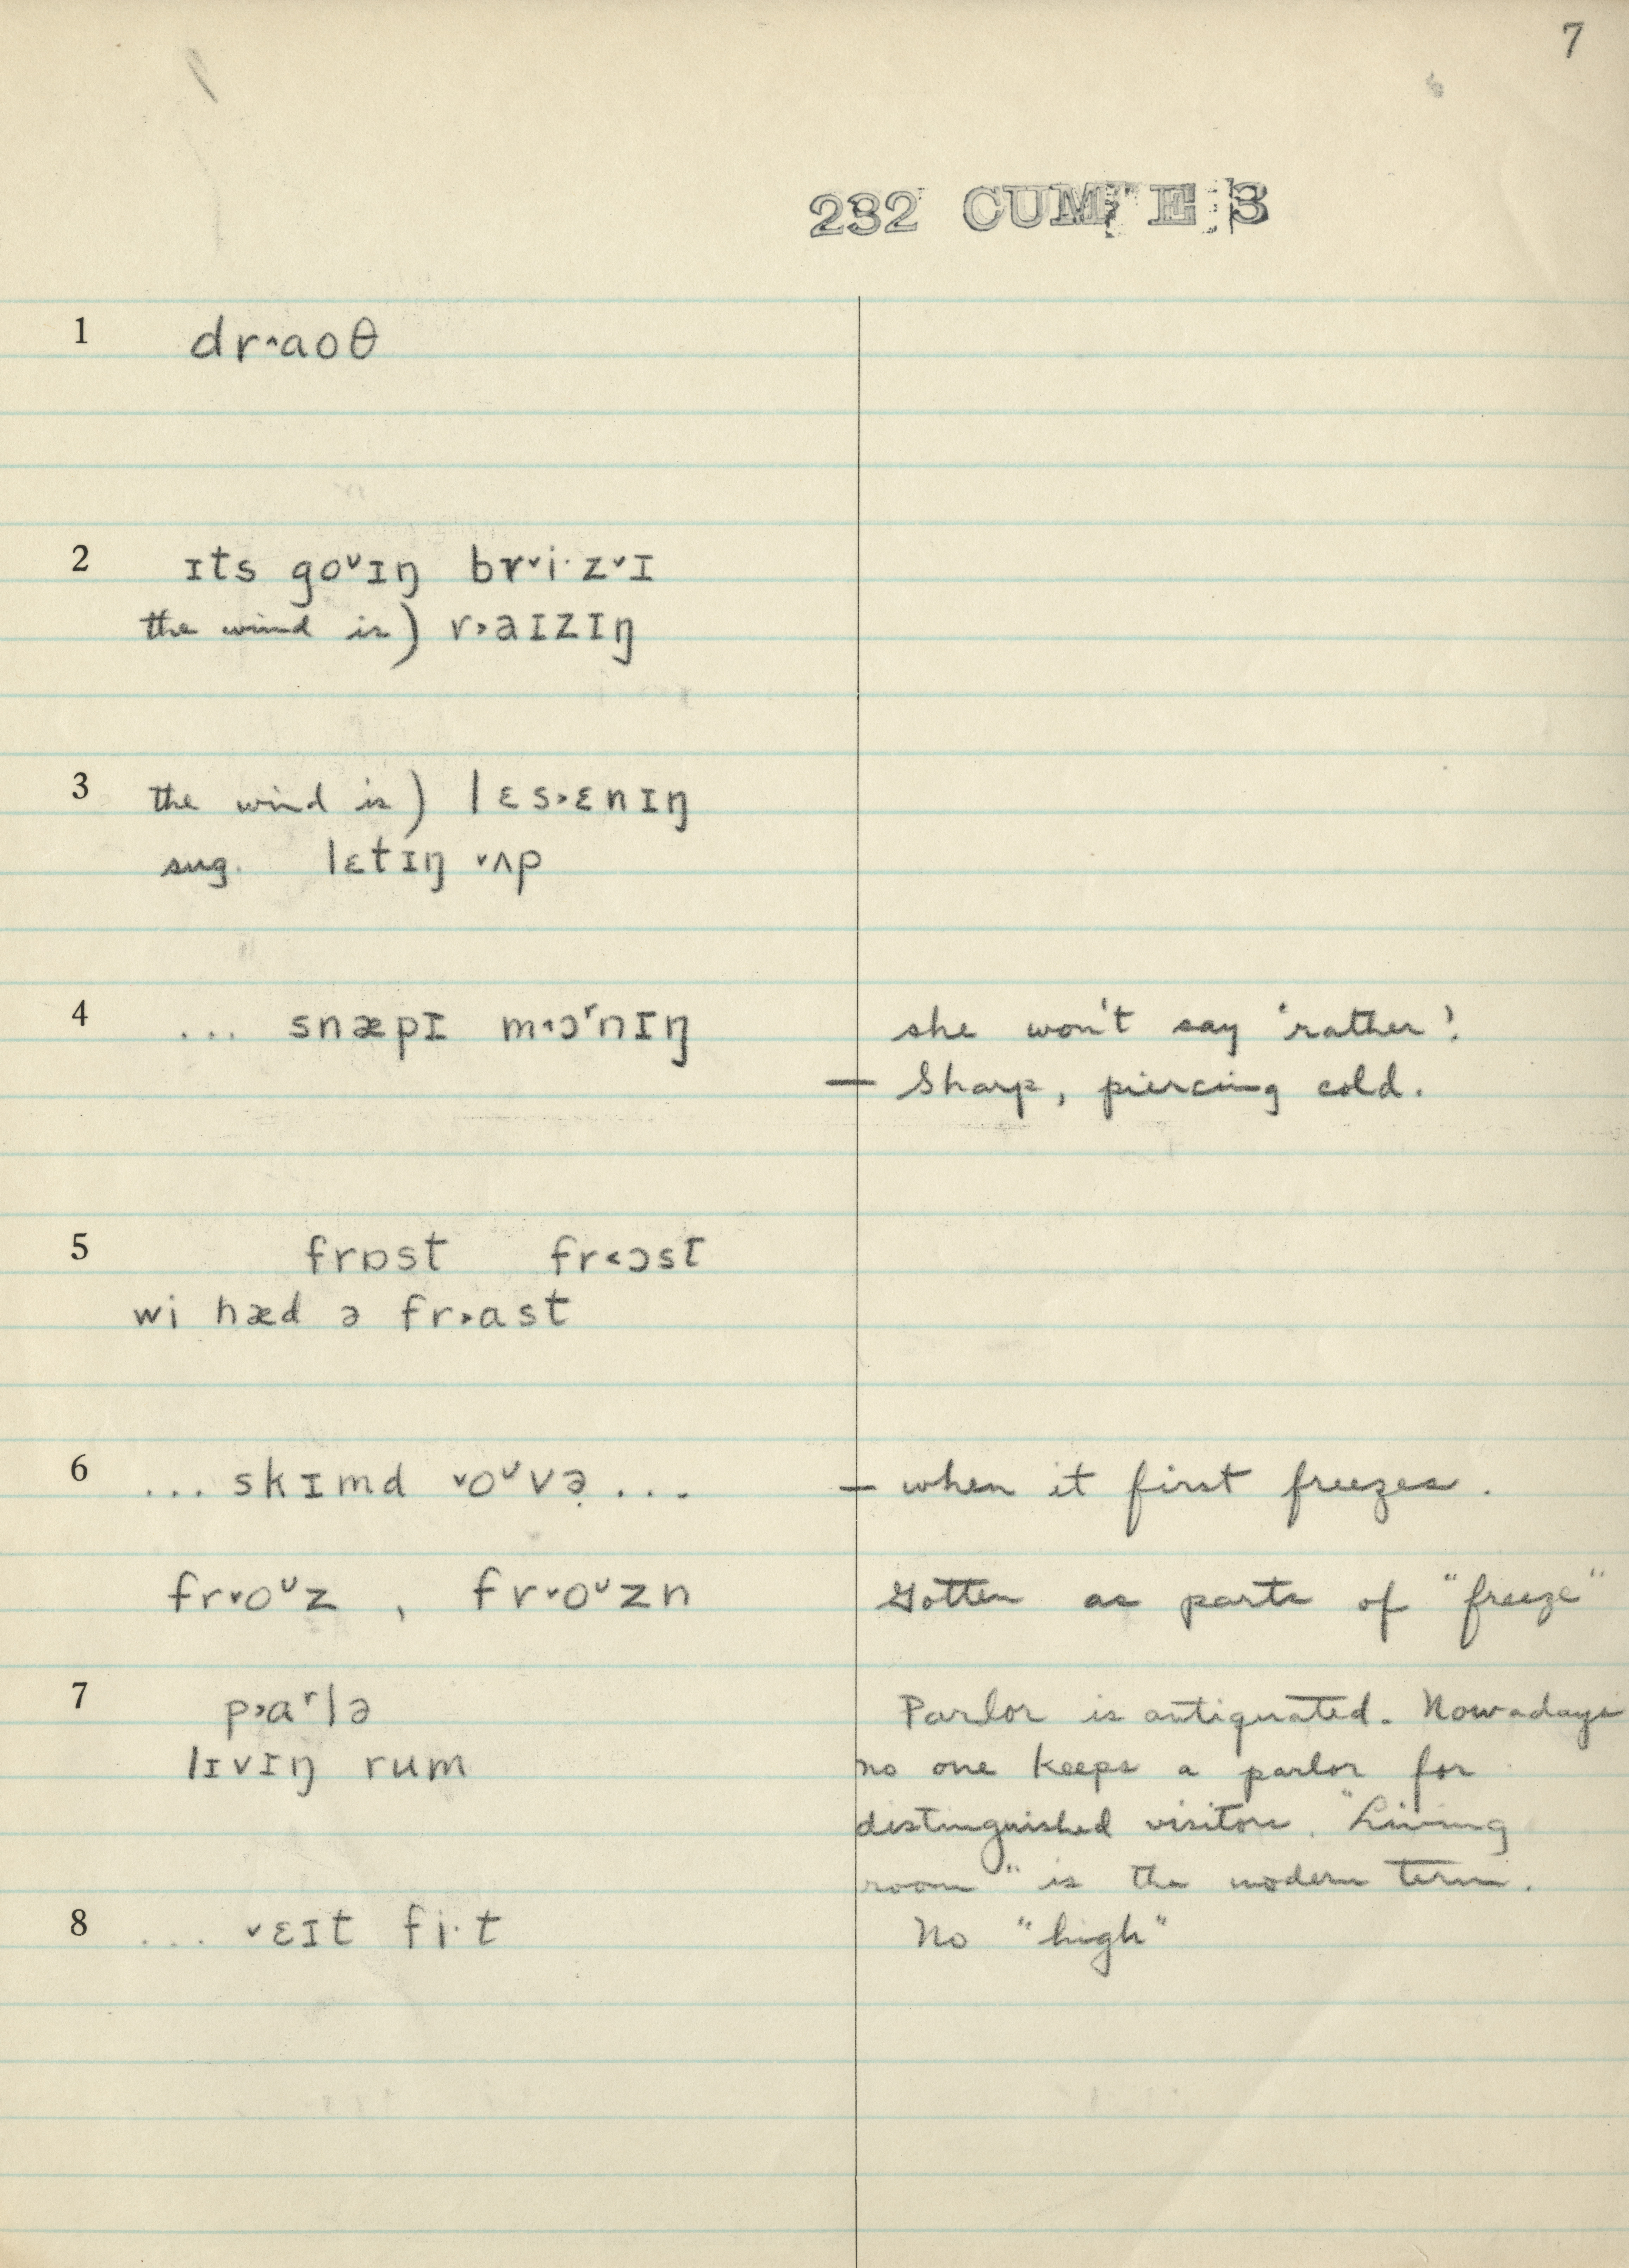 7
232 CUM' E 3
1 dr˄aoθ
2 ɪts goᵛɪŋ br˅i·z˅ɪ
the wind is) r˃aɪzɪŋ
3 the wind is) lɛs˃ɛnɪŋ
sug. lɛtɪŋ ˅ʌp
4 ... snæpɪ m˂ɔʳnɪŋ she won't say 'rather'.
— Sharp, piercing cold.
5 frɒst fr˂ɔst
wi hæd ə fr˃ast
6 ... skɪmd ˅oᶸvə̣ ... — when it first freezes.
fr˅oᶸz , fr˅oᶸzn Gotten as parts of "freeze"
7 p˃aʳlə Parlor is antiquated. Nowadays
lɪvɪŋ rum no one keeps a parlor for
distinguished visitors. "Living
room" is the modern term.
8 ... ˅ɛɪt fi·t No "high"